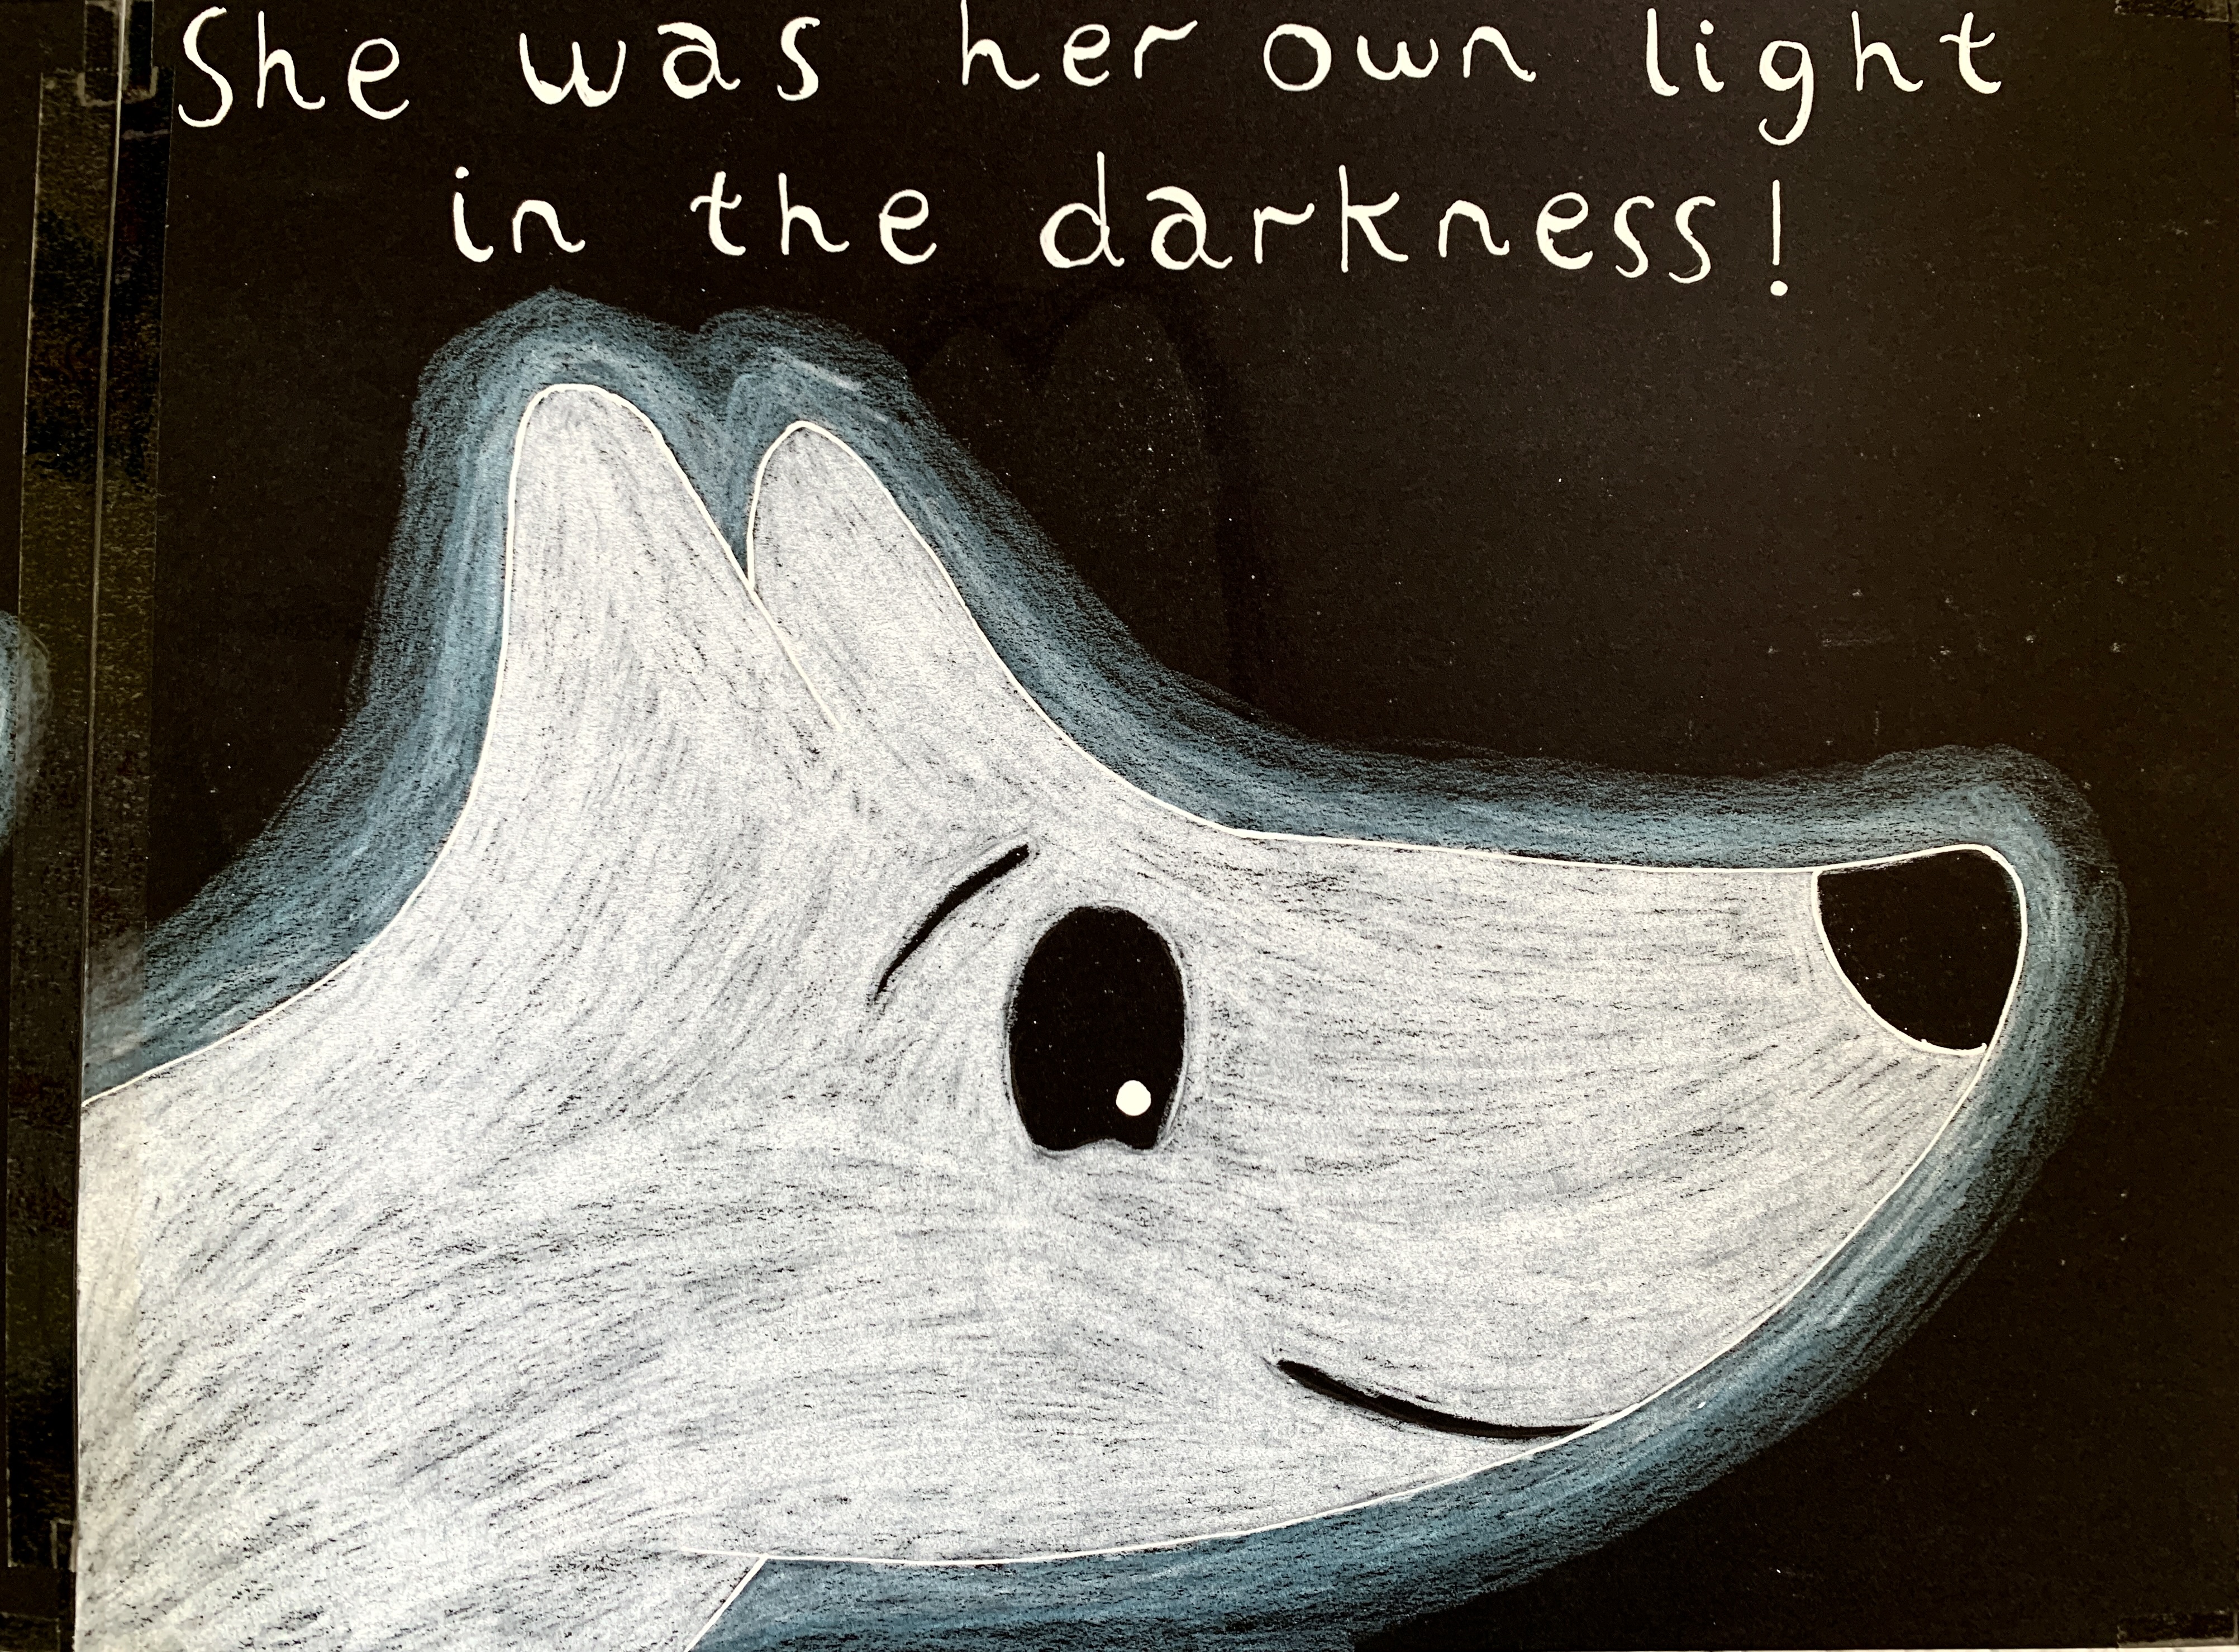 She was her own light
in the darkness!